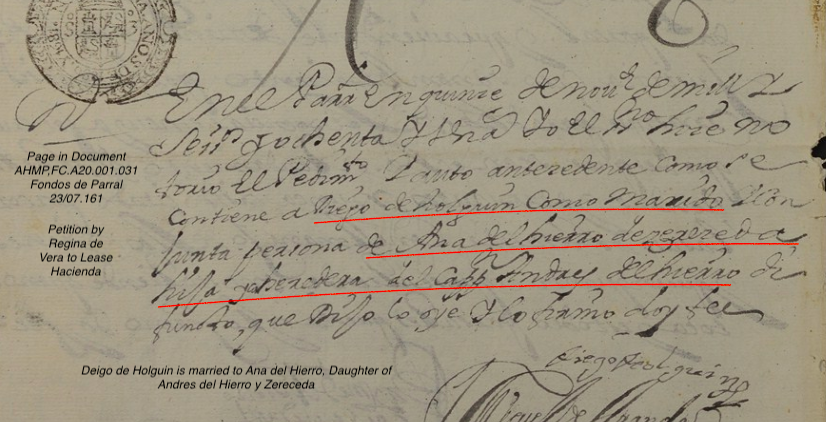 En el Parral en quinse de nouᵉ de mill y
seisᵒˢ y ochenta y Un a yo el s.ⁿᵒ hise no
torio el Pedim.ᵗᵒ y auto antecedente como se
contiene a Diego de Holguin Como Marido y Con
junta persona de Ana del hierro de zerezeda
hija y heredera del Capᵖ Andres del hierro di
funto, que dijo lo oye y lo firmo doy fee
Diego de olguin
Miguel de Aranda
Page in Document
AHMP.FC.A20.001.031
Fondos de Parral
23/07.161
Petition by
Regina de
Vera to Lease
Hacienda
Deigo de Holguin is married to Ana del Hierro, Daughter of
Andres del Hierro y Zereceda